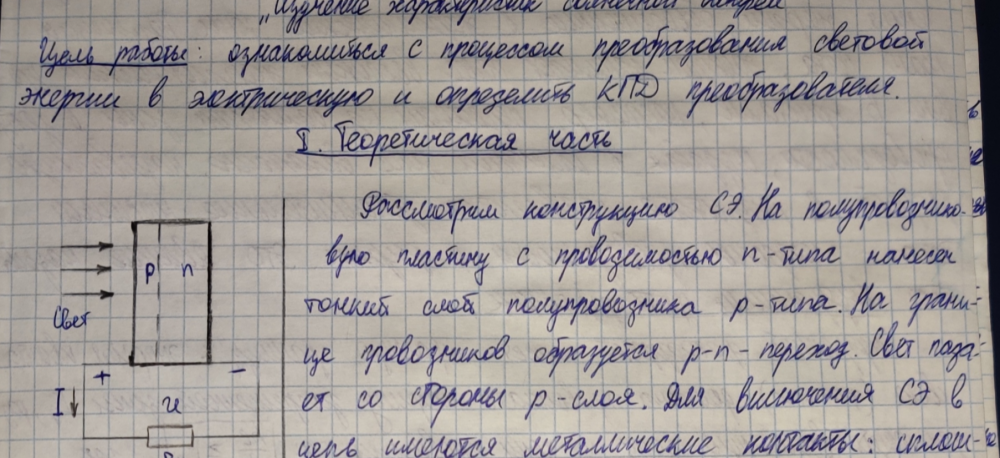 „Изучение характеристик солнечной батареи"
Цель работы: ознакомиться с процессом преобразования световой
энергии в эоктрическую и определить КПД преобразователя.
I. Теоретическая часть
Рассмотрим конструкцию СЭ. На полупроводнико-
вую пластину с проводимостью n-типа нанесен
тонкий слой полупроводника p-типа. На грани-
це проводников образуется p-n-переход. Свет пада-
ет со стороны p-слоя. Для включения СЭ в
цепь имеются металлические контакты: сплош-
p n
Свет
+ −
I
u